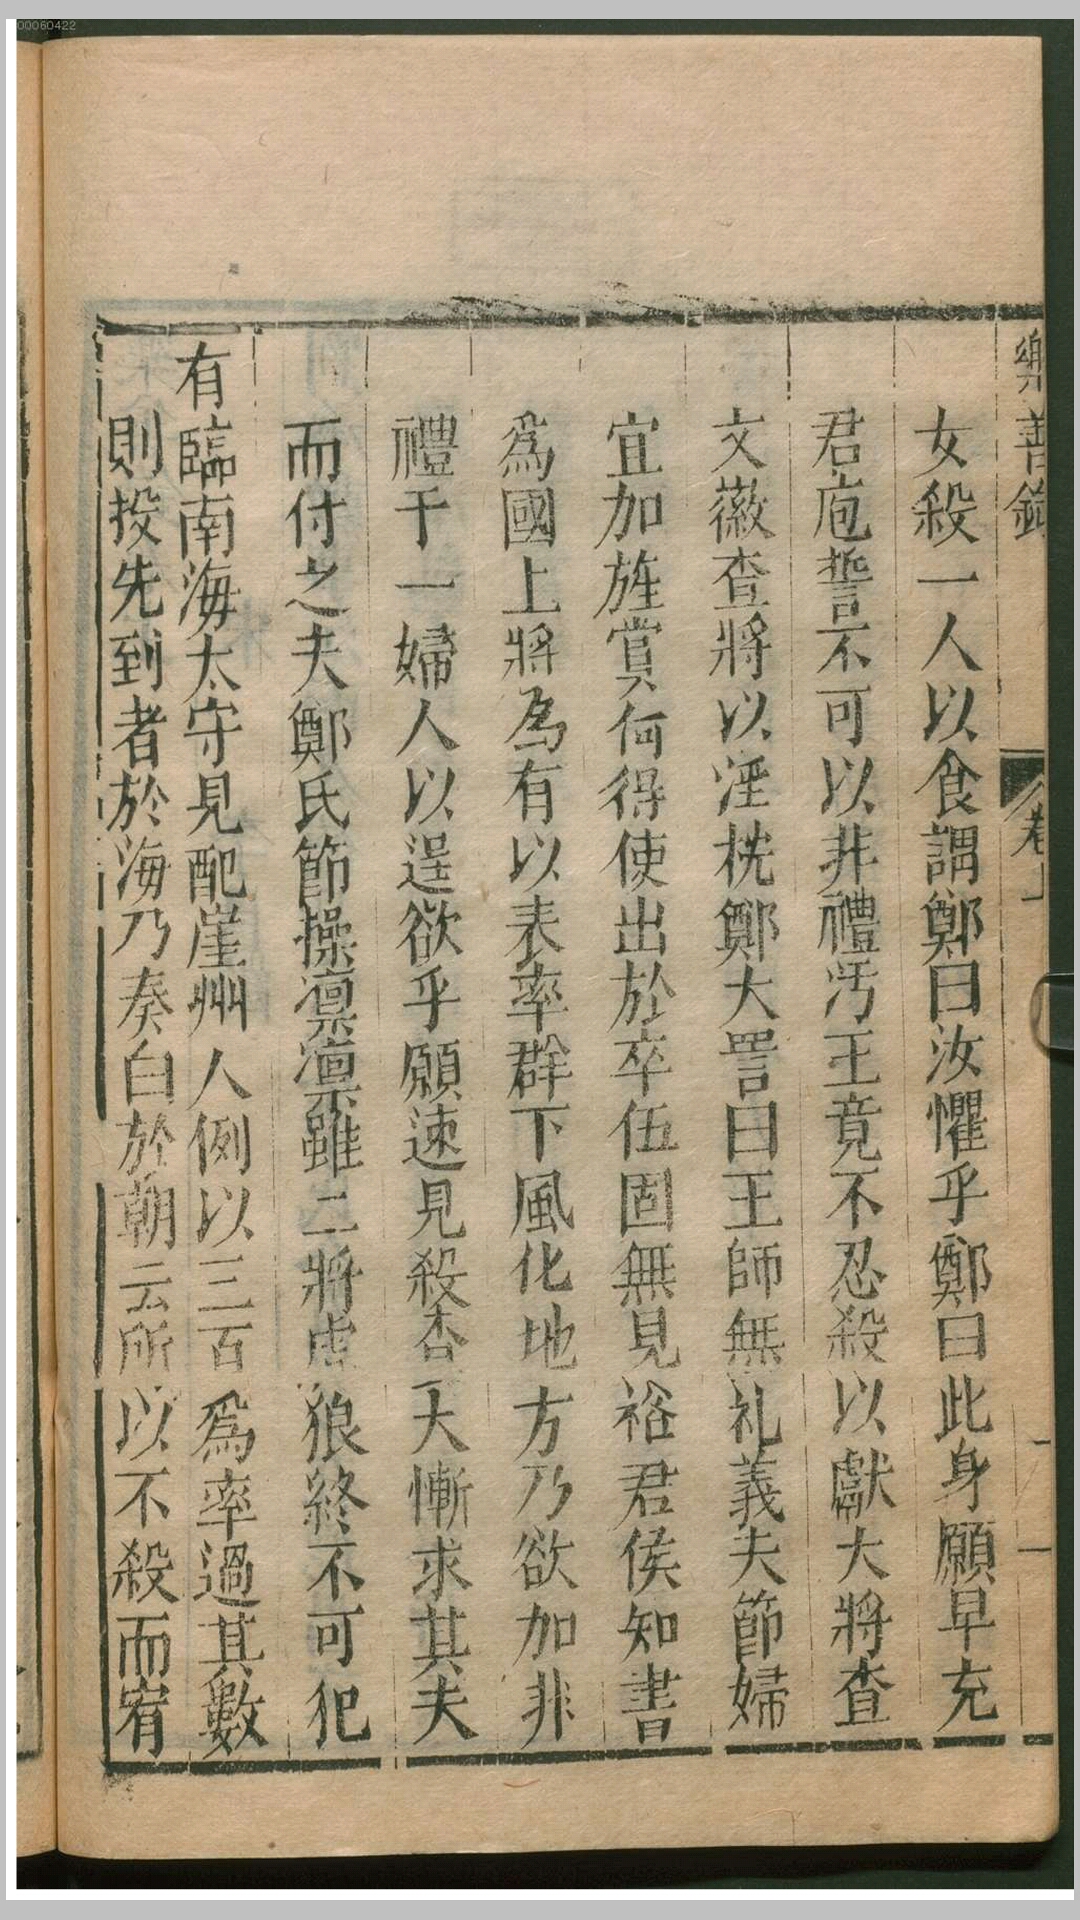 00060422
樂善錄
卷上
女殺一人以食謂鄭曰汝懼乎鄭曰此身願早充
君庖誓不可以非禮汚王竟不忍殺以獻大將查
文徽查將以淫桄鄭大詈曰王師無礼義夫節婦
宜加旌賞何得使出於卒伍固無見裕君侯知書
爲國上將為有以表率群下風化地方乃欲加非
禮于一婦人以逞欲乎願速見殺杏大慚求其夫
而付之夫鄭氏節操凛凛雖二將虎狼終不可犯
有臨南海太守見配崖州人例以三百爲率過其數
則投先到者於海乃奏白於朝云所以不殺而宥